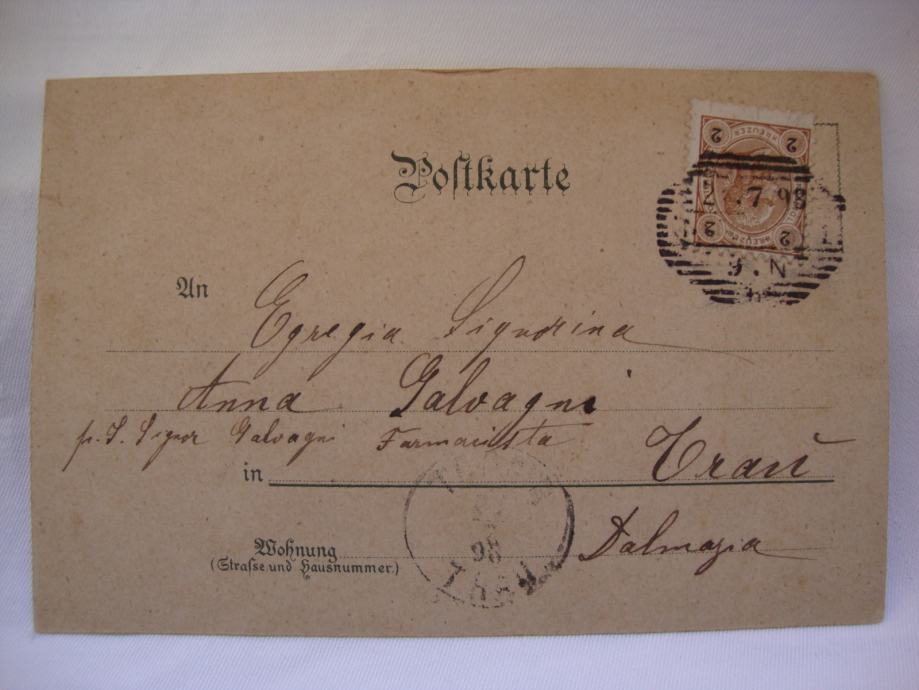 Postkarte
2 KREUZER 2
7 98
2 KREUZER 2
9. N
An Egregia Signorina
Anna Galvagni
p. S. Signor Galvagni Farmacista
in Traù
Dalmazia
Wohnung
(Strafse und Hausnummer.)
98
TRAU